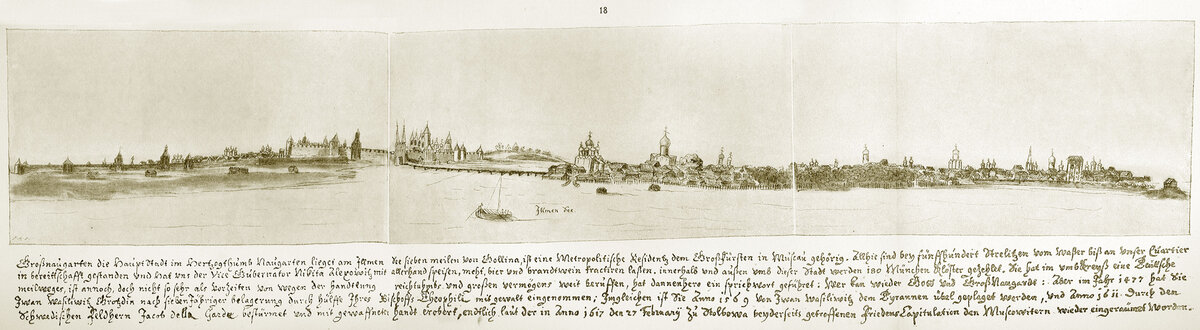 18
Ilmen See
Großnaugarten die Hauptstadt im Hertzogthumb Naugarten lieget am Ilmen See sieben meilen von Bollina, ist eine Metropolitische Residentz dem Großfürsten in Muscau gehörig. Allhie sind bey fünfhundert Strelitzen vom Waßer biß an unser Quartier
in bereittschafft gestanden und hat uns der Vice Gubernator Nikita mit allerhand speisen, meht, bier und brandtwein tractiren laßen, innerhalb und außen umb dieser Stadt werden 180 München Klöster gezehlet. Sie hat im umbkreys eine Teutsche
meilweges, ist annoch, doch nicht so sehr als vorzeiten von wegen der handtlung reichthumbs und grossen vermögens weit beruffen, hat dannenhero ein sprichwort geführt: Wer kan wieder Gott und Groß Naugarde: Aber im Jahr 1477 hat sie
Iwan Wasilwitz Grotzdin nach siebenjähriger belagerung durch hülffe Ihres Bischoffs Theophili mit gewalt eingenommen; Imgleichen ist sie Anno 1569 von Iwan Wasilwitz dem Tyrannen übel geplaget worden, und Anno 1611. durch den
Schwedischen Feldhern Jacob della Gardie bestürmet und mit gewaffneter handt erobert, endtlich laut der in Anno 1617 den 27 February zu Stolbowa beyderseits getroffenen Friedens Capitulation den Muscowitern wieder eingeraumet worden.